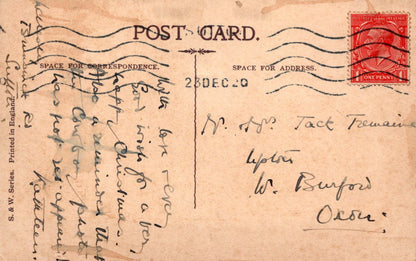 POST CARD.
SPACE FOR CORRESPONDENCE.
SPACE FOR ADDRESS.
23 DEC 20
ONE PENNY
S. & W. Series. Printed in England.
Jack Tremaine
Upton
W. Burford
Oxon:
With love & every
good wish for a very
happy Christmas.
Also a reminder that
the photo
has not yet appeared
Kathleen.